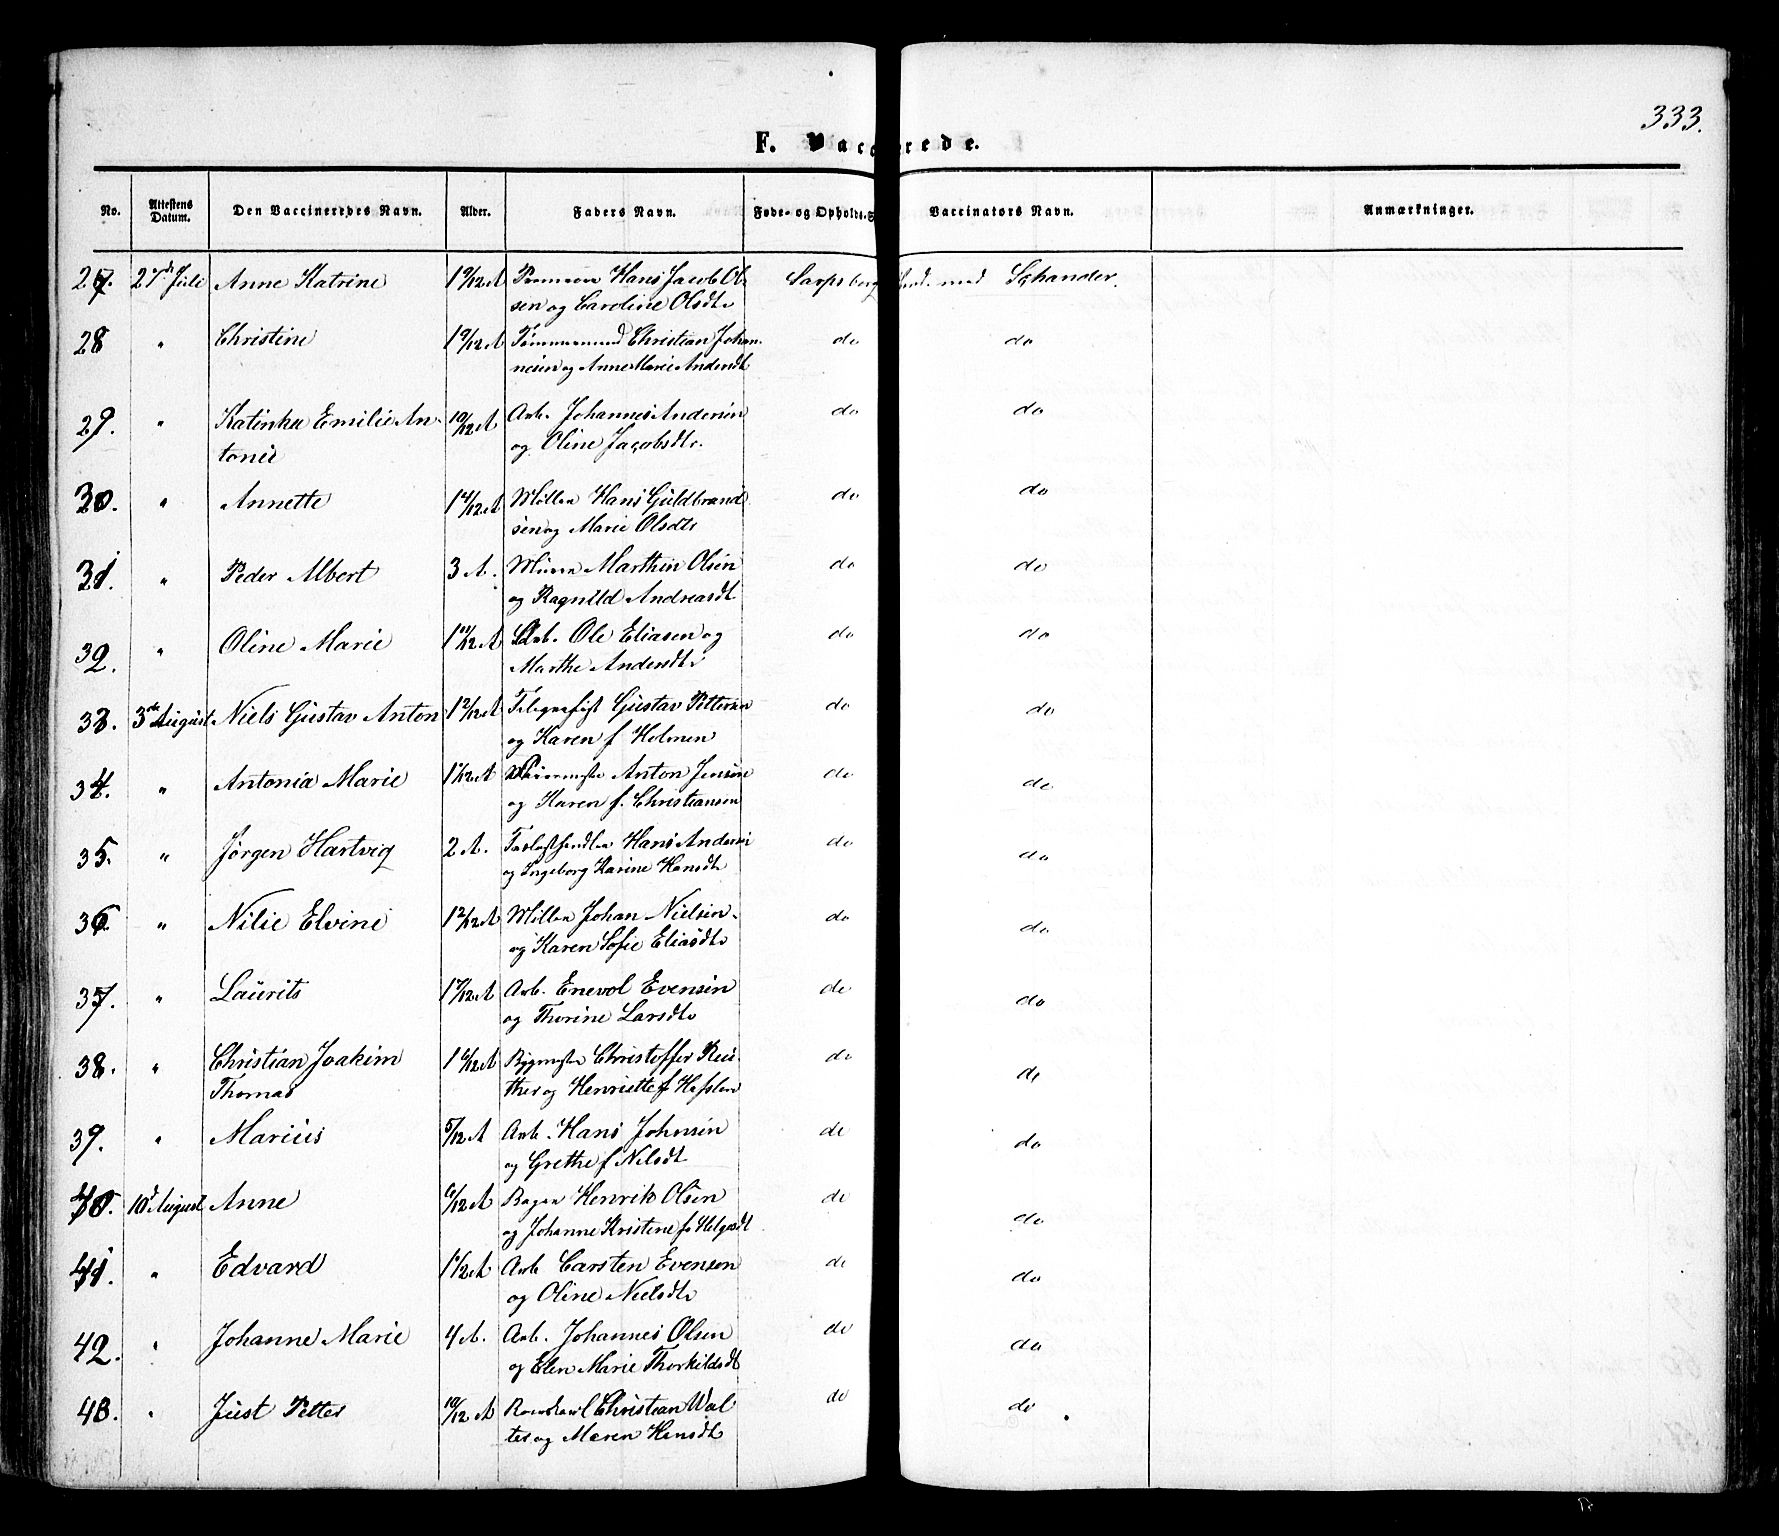 333.
F. Vacc rede.
No. Attestens Datum. Den Vaccineredes Navn. Alder. Faders Navn. Føde- og Opholds-S Vaccinators Navn. Anmærkninger.
27. 27de Juli Anne Katrine 1 9/12 A Hans Jacob Ol- Sarpsborg med Schander.
sen og Caroline Olsdtr
28 " Christine 1 9/12 A Tømmermand Christian Johan- do do
nesen og Anne Marie Andersdt
29. " Katinka Emilie An- 10/12 A Arb. Johannes Andersen do do
tonie og Oline Jacobsdtr.
30. " Annette 1 4/12 A Møller Hans Guldbrand do do
sen og Marie Olsdtr
31. " Peder Albert 3 A. Murer Marthin Olsen do do
og Ragnild Andreasdt
32. " Oline Marie 1 11/12 A Arb. Ole Eliasen og do do
Marthe Andersdtr
33. 3de August Niels Gustav Anton 1 2/12 A Telegrafist Gustav Pettersen do do
og Karen f Holmen
34. " Antonia Marie 1 1/12 A Anton Jensen do do
og Karen f. Christiansen
35. " Jørgen Hartvig 2 A. Hans Andersen do do
og Ingeborg Karine Hansdtr
36. " Nilie Elvine 1 2/12 A Møller Johan Nielsen do do
og Karen Sofie Eliasdtr
37. " Laurits 1 7/12 A Arb. Enevol Evensen do do
og Thorine Larsdtr
38. " Christian Joakim 1 6/12 A Bygmester Christoffer Reu- do do
Thomas ther og Henriette f Hesslen
39. " Marius 5/12 A Arb. Hans Johnsen do do
og Grethe f Nilsdt
40. 10d August Anne 6/12 A Bager Henrik Olsen do do
og Johanne Kristine f. Helgesdt
41. " Edvard 1 1/12 A Arb Carsten Evensen do do
og Oline Nielsdtr
42. " Johanne Marie 4 A. Arb. Johannes Olsen do do
og Elen Marie Thorkildsdt
43. " Just Petter 10/12 A Christian Wal do do
ter og Maren Hansdt